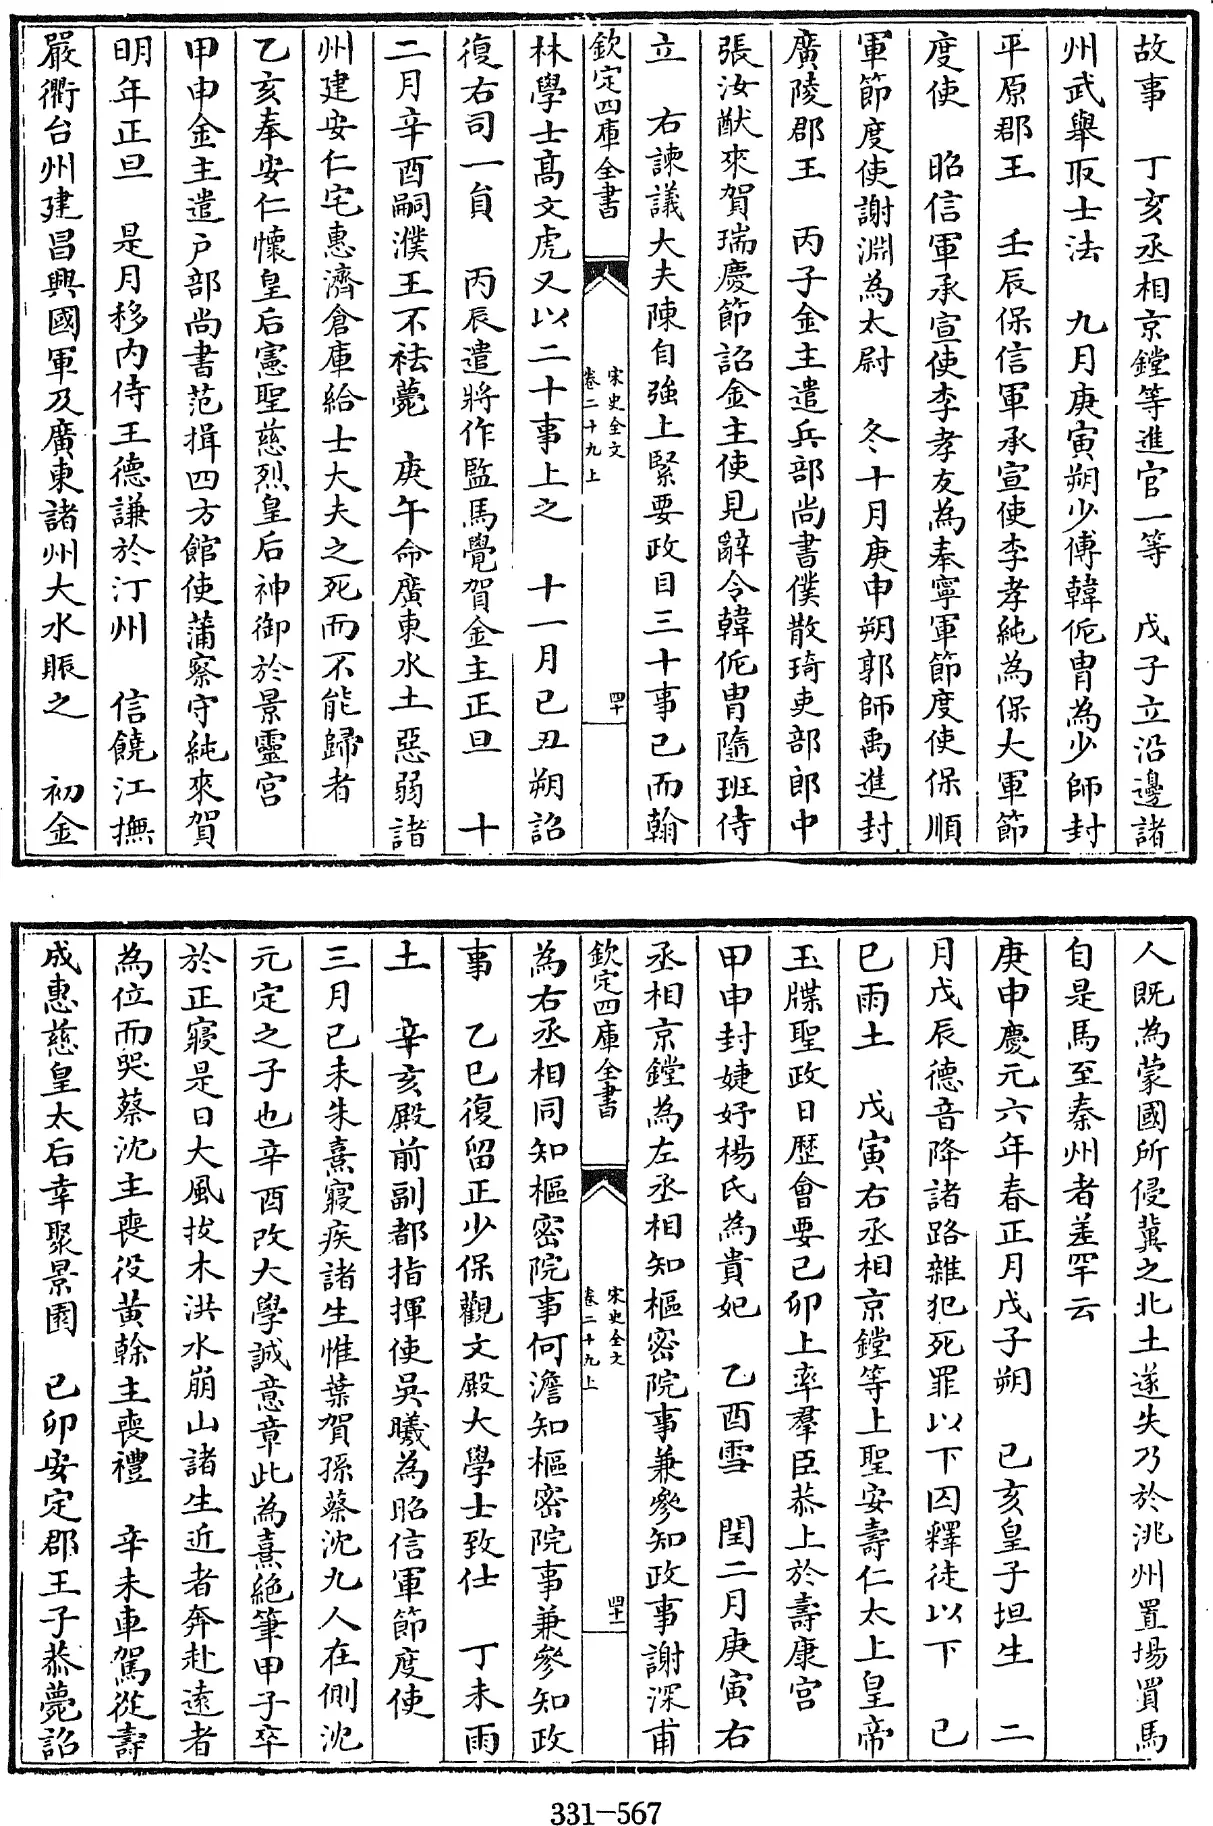 故事　丁亥丞相京鏜等進官一等　戊子立沿邊諸
州武舉取士法　九月庚寅朔少傅韓侂胄為少師封
平原郡王　壬辰保信軍承宣使李孝純為保大軍節
度使　昭信軍承宣使李孝友為奉寧軍節度使保順
軍節度使謝淵為太尉　冬十月庚申朔郭師禹進封
廣陵郡王　丙子金主遣兵部尚書僕散琦吏部郎中
張汝猷來賀瑞慶節詔金主使見辭令韓侂胄隨班侍
立　右諫議大夫陳自強上緊要政目三十事已而翰
欽定四庫全書
宋史全文
卷二十九上
四十
林學士高文虎又以二十事上之　十一月已丑朔詔
復右司一員　丙辰遣將作監馬覺賀金主正旦　十
二月辛酉嗣濮王不祛薨　庚午命廣東水土惡弱諸
州建安仁宅惠濟倉庫給士大夫之死而不能歸者
乙亥奉安仁懷皇后憲聖慈烈皇后神御於景靈宮
甲申金主遣户部尚書范揖四方館使蒲察守純來賀
明年正旦　是月移内侍王德謙於汀州　信饒江撫
嚴衢台州建昌興國軍及廣東諸州大水賑之　初金
人既為蒙國所侵冀之北土遂失乃於洮州置場買馬
自是馬至秦州者差罕云
庚申慶元六年春正月戊子朔　已亥皇子坦生　二
月戊辰德音降諸路雜犯死罪以下囚釋徒以下　己
巳雨土　戊寅右丞相京鏜等上聖安壽仁太上皇帝
玉牒聖政日歷會要己卯上率羣臣恭上於壽康宫
甲申封婕妤楊氏為貴妃　乙酉雪　閏二月庚寅右
丞相京鏜為左丞相知樞密院事兼參知政事謝深甫
欽定四庫全書
宋史全文
卷二十九上
四十一
為右丞相同知樞密院事何澹知樞密院事兼參知政
事　乙巳復留正少保觀文殿大學士致仕　丁未雨
土　辛亥殿前副都指揮使吳曦為昭信軍節度使
三月已未朱熹寢疾諸生惟葉賀孫蔡沈九人在側沈
元定之子也辛酉改大學誠意章此為熹絶筆甲子卒
於正寢是日大風拔木洪水崩山諸生近者奔赴遠者
為位而哭蔡沈主喪役黄榦主喪禮　辛未車駕從壽
成惠慈皇太后幸聚景園　已卯安定郡王子恭薨詔
331-567